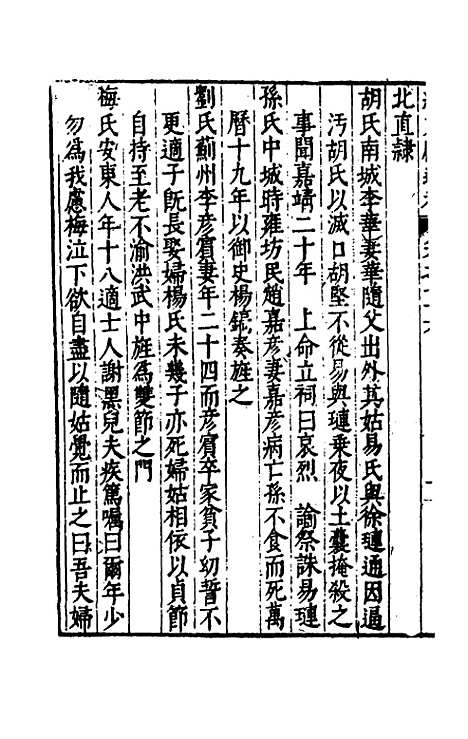 北直隷
胡氏南城李華妻華隨父出外其姑易氏與徐璉通因逼
汚胡氏以滅口胡堅不從易與璉乗夜以土囊掩殺之
事聞嘉靖二十年　上命立祠曰哀烈　諭祭誅易璉
孫氏中城時雍坊民趙嘉彦妻嘉彦病亡孫不食而死萬
曆十九年以御史楊鎬奏旌之
劉氏薊州李彦賓妻年二十四而彦賓卒家貧子幼誓不
更適子旣長娶婦楊氏未幾子亦死婦姑相依以貞節
自持至老不渝洪武中旌爲雙節之門
梅氏安東人年十八適士人謝黑兒夫疾篤囑曰爾年少
勿爲我慮梅泣下欲自盡以隨姑覺而止之曰吾夫婦